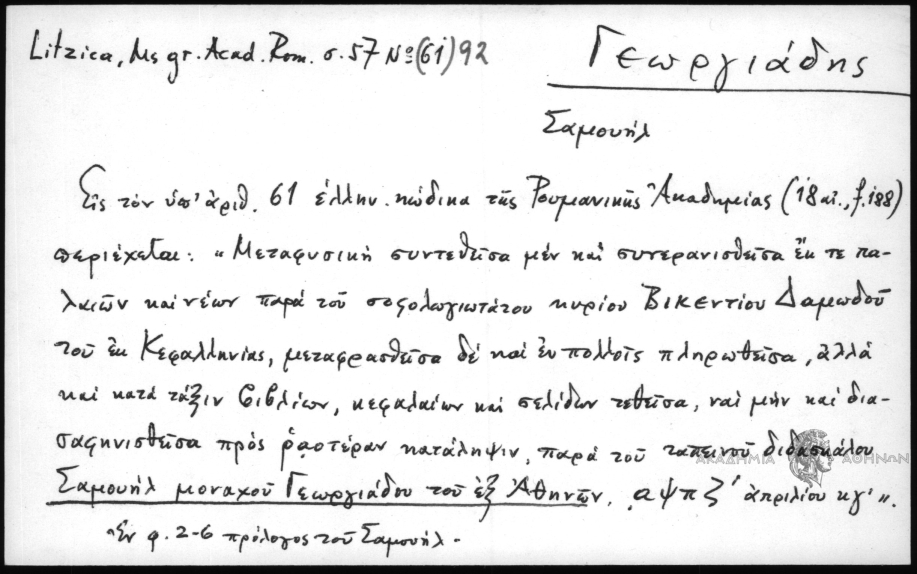 Litzica, Ms gr. Acad. Rom. σ. 57 Nº (61) 92
Γεωργιάδης
Σαμουήλ
Εἰς τὸν ὑπ' ἀριθ. 61 ἑλλην. κώδικα τῆς Ρουμανικῆς Ἀκαδημείας (18 αἰ., f. 188)
περιέχεται: "Μεταφυσικὴ συντεθεῖσα μὲν καὶ συνερανισθεῖσα ἔκ τε πα-
λαιῶν καὶ νέων παρὰ τοῦ σοφολωγιωτάτου κυρίου Βικεντίου Δαμωδοῦ
τοῦ ἐκ Κεφαλληνίας, μεταφρασθεῖσα δὲ καὶ ἐν πολλοῖς πληρωθεῖσα, ἀλλὰ
καὶ κατὰ τάξιν βιβλίων, κεφαλαίων καὶ σελίδων τεθεῖσα, ναὶ μὴν καὶ δια-
σαφηνισθεῖσα πρὸς ῥᾳοτέραν κατάληψιν, παρὰ τοῦ ταπεινοῦ διδασκάλου
Σαμουὴλ μοναχοῦ Γεωργιάδου τοῦ ἐξ Ἀθηνῶν, ͵αψπζ' ἀπριλίου κγ'".
Ἐν φ. 2-6 πρόλογος τοῦ Σαμουήλ.
ΑΚΑΔΗΜΙΑ ΑΘΗΝΩΝ